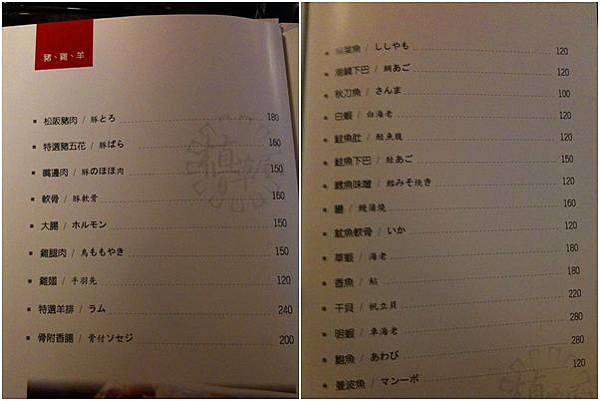 豬、雞、羊
松阪豬肉 / 豚とろ 180
特選豬五花 / 豚ばら 160
嘴邊肉 / 豚のほほ肉 150
軟骨 / 豚軟骨 160
大腸 / ホルモン 150
雞腿肉 / 鳥ももやき 150
雞翅 / 手羽先 120
特選羊排 / ラム 240
骨附香腸 / 骨付ソセジ 200
魚 / ししやも 120
下巴 / 鯛あご 120
秋刀魚 / さんま 100
白蝦 / 白海老 120
鮭魚肚 / 鮭魚腹 120
鮭魚下巴 / 鮭あご 150
鱈魚味噌 / 鱈みそ焼き 120
鰻 / 鰻蒲燒 160
魷魚軟骨 / いか 120
草蝦 / 海老 180
香魚 / 鮎 180
干貝 / 帆立貝 220
明蝦 / 車海老 280
鮑魚 / あわび 280
曼波魚 / マンーボ 120